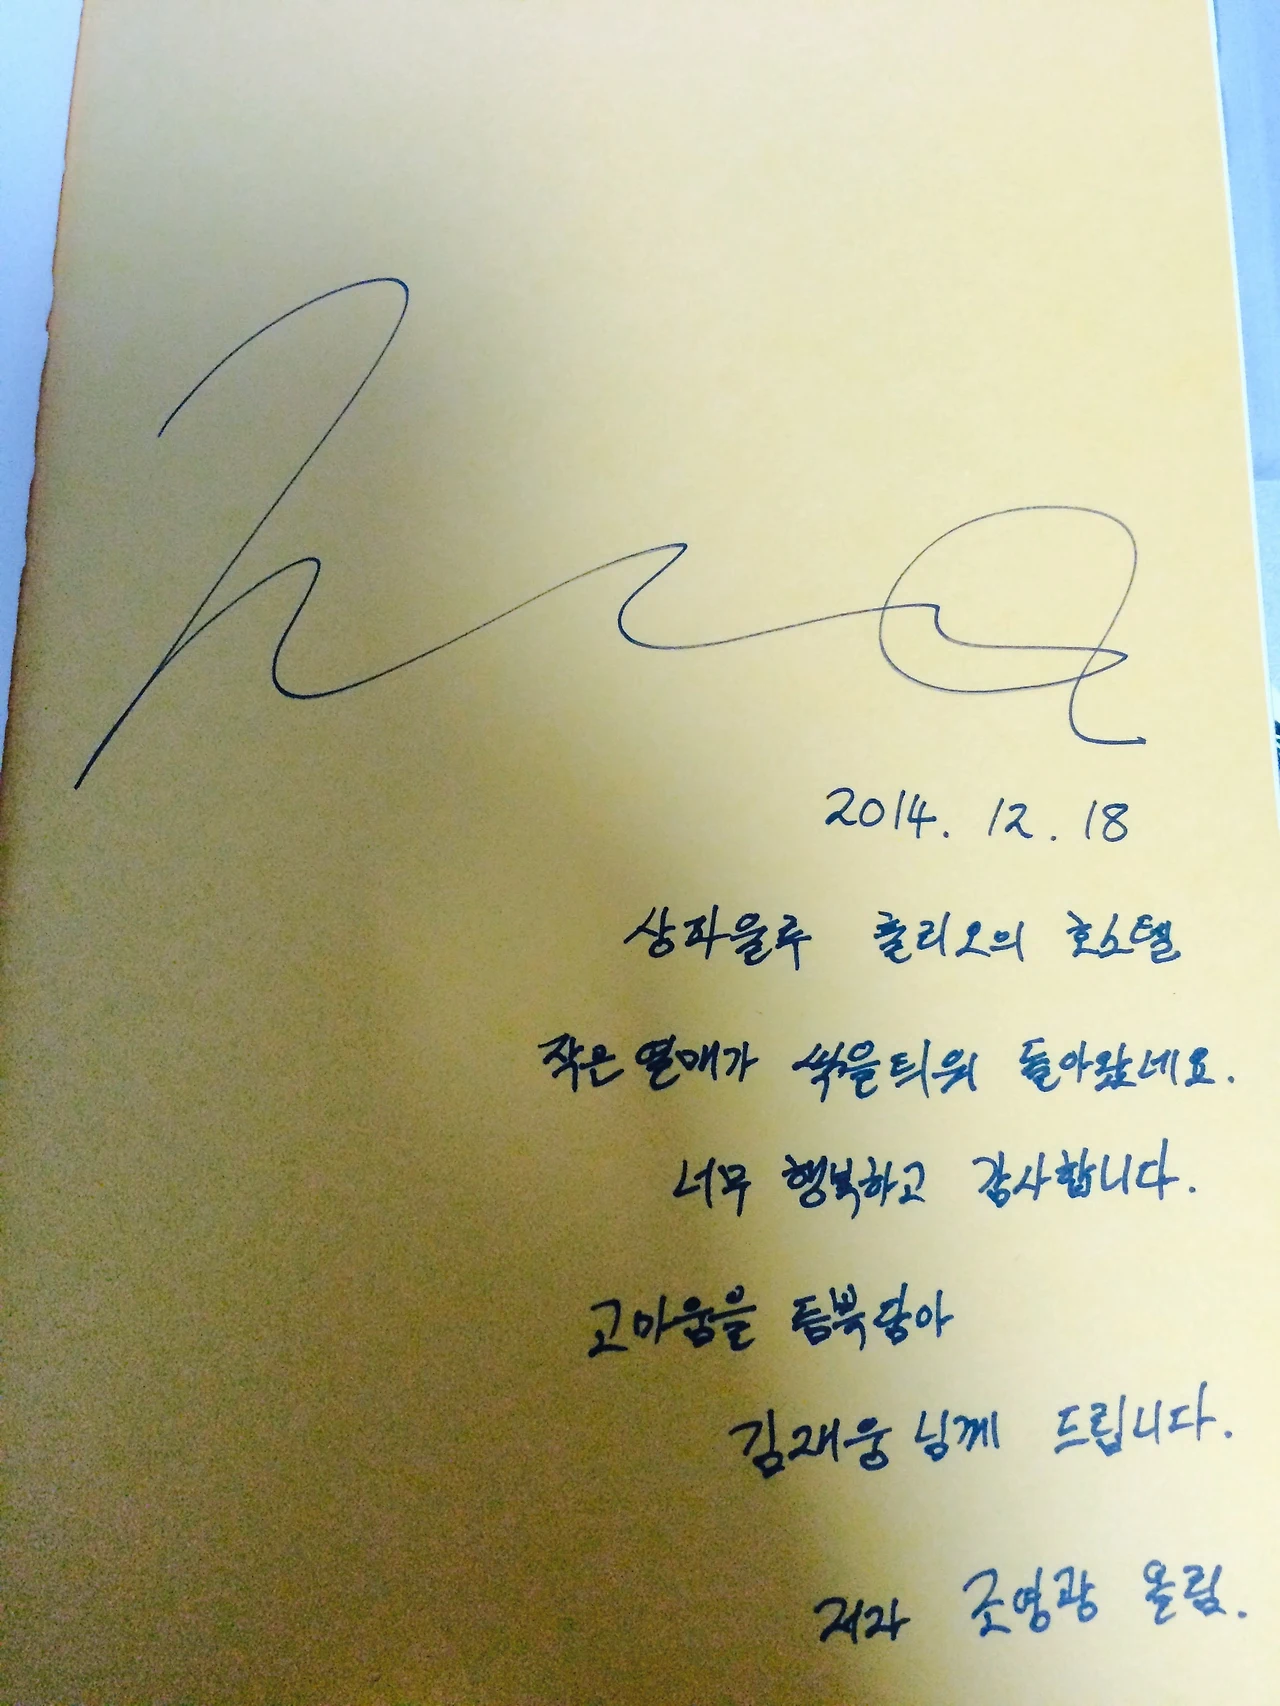 2014. 12. 18
상파울루 훌리오의 호스텔
작은 열매가 싹을 틔워 돌아왔네요.
너무 행복하고 감사합니다.
고마움을 듬뿍담아
김재웅님께 드립니다.
저자 조영광 올림.